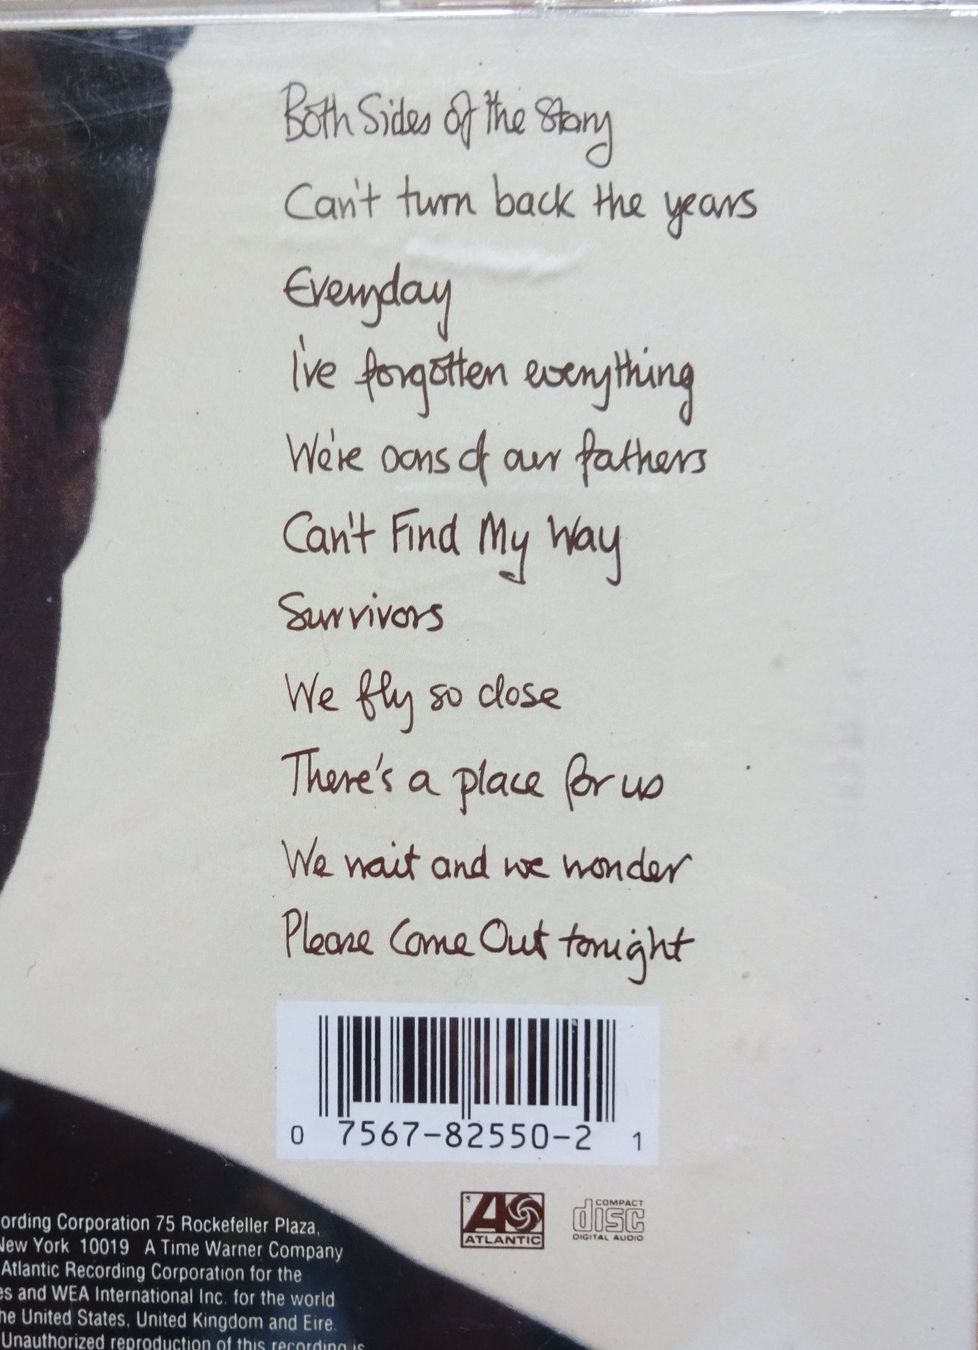 Both Sides of the Story
Can't turn back the years
Everyday
I've forgotten everything
We're sons of our fathers
Can't Find My Way
Survivors
We fly so close
There's a place for us
We wait and we wonder
Please Come Out tonight
0 7567-82550-2 1
ATLANTIC
COMPACT
disc
DIGITAL AUDIO
ording Corporation 75 Rockefeller Plaza,
New York 10019 A Time Warner Company
Atlantic Recording Corporation for the
es and WEA International Inc. for the world
he United States, United Kingdom and Eire.
Unauthorized reproduction of this recording is